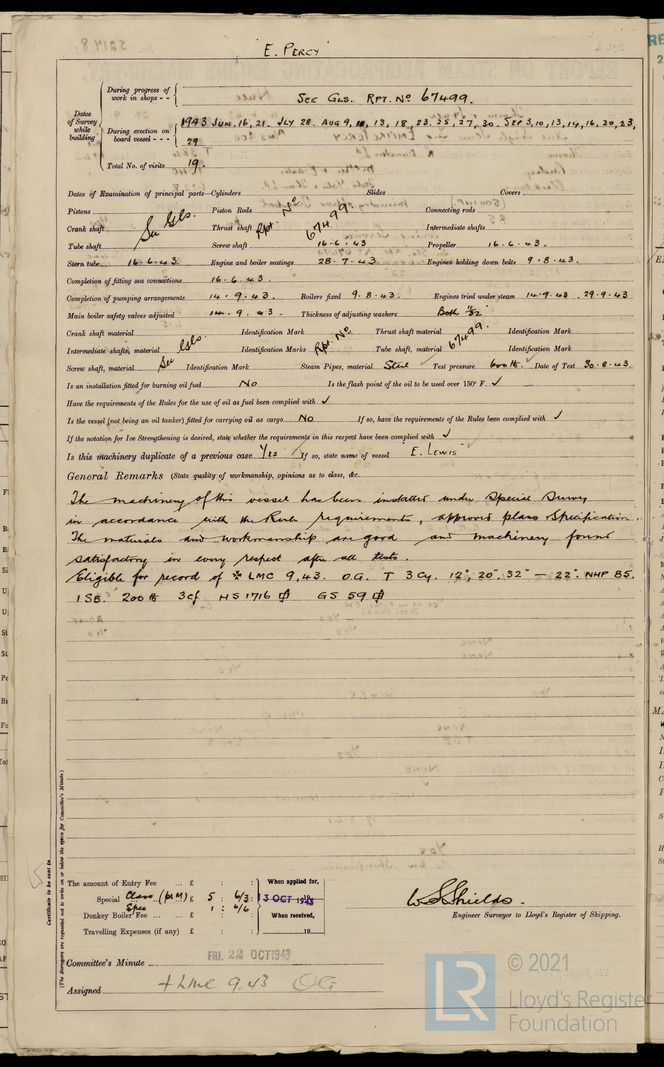 "E. PERCY"
Dates of Survey while building
During progress of work in shops - -
SEE GLS. RPT. No 67499.
During erection on board vessel - - -
1943 JUN, 16, 21. JLY 28. AUG 9, 11, 13, 18, 23. 25, 27, 30. SEP 3, 10, 13, 14, 16, 20, 23,
29
Total No. of visits 19.
Dates of Examination of principal parts—Cylinders Slides Covers
Pistons Piston Rods Connecting rods
Crank shaft See Gls. Thrust shaft Rpt. No 67499. Intermediate shafts
Tube shaft Screw shaft 16-6-43 Propeller 16-6-43.
Stern tube 16-6-43 Engine and boiler seatings 28-7-43 Engines holding down bolts 9-8-43.
Completion of fitting sea connections 16-6-43.
Completion of pumping arrangements 14-9-43. Boilers fixed 9-8-43. Engines tried under steam 14-9-43. 29-9-43
Main boiler safety valves adjusted 14-9-43. Thickness of adjusting washers Both 11/32"
Crank shaft material See Gls. Identification Mark Rpt. No Thrust shaft material 67499. Identification Mark
Intermediate shafts, material Identification Marks Tube shaft, material Identification Mark
Screw shaft, material Identification Mark Steam Pipes, material Steel Test pressure 600 lb. Date of Test 30-8-43.
Is an installation fitted for burning oil fuel No Is the flash point of the oil to be used over 150° F. ✓
Have the requirements of the Rules for the use of oil as fuel been complied with ✓
Is the vessel (not being an oil tanker) fitted for carrying oil as cargo No If so, have the requirements of the Rules been complied with ✓
If the notation for Ice Strengthening is desired, state whether the requirements in this respect have been complied with ✓
Is this machinery duplicate of a previous case Yes If so, state name of vessel "E. LEWIS"
General Remarks (State quality of workmanship, opinions as to class, &c.
The machinery of this vessel has been installed under Special Survey
in accordance with the Rule requirements, approved plans & Specification.
The materials and workmanship are good and machinery found
satisfactory in every respect after all tests.
Eligible for record of LMC 9,43. O.G. T 3Cy. 12", 20", 32" — 22". NHP 85.
1 SB. 200 lb 3cf HS 1716 GS 59
Certificate to be sent to
(The Surveyors are requested not to write on or below the space for Committee's Minute.)
The amount of Entry Fee ... £ : :
Special Class (pr M) £ 5 : 6/3 :
Spec
Donkey Boiler Fee ... £ 1 : 6/6 :
Travelling Expenses (if any) £ : :
When applied for,
13 OCT 1943
When received,
19
W S Shields.
Engineer Surveyor to Lloyd's Register of Shipping.
Committee's Minute FRI. 22 OCT 1943
Assigned + LMC 9.43 OG
LR
© 2021
Lloyd's Register
Foundation